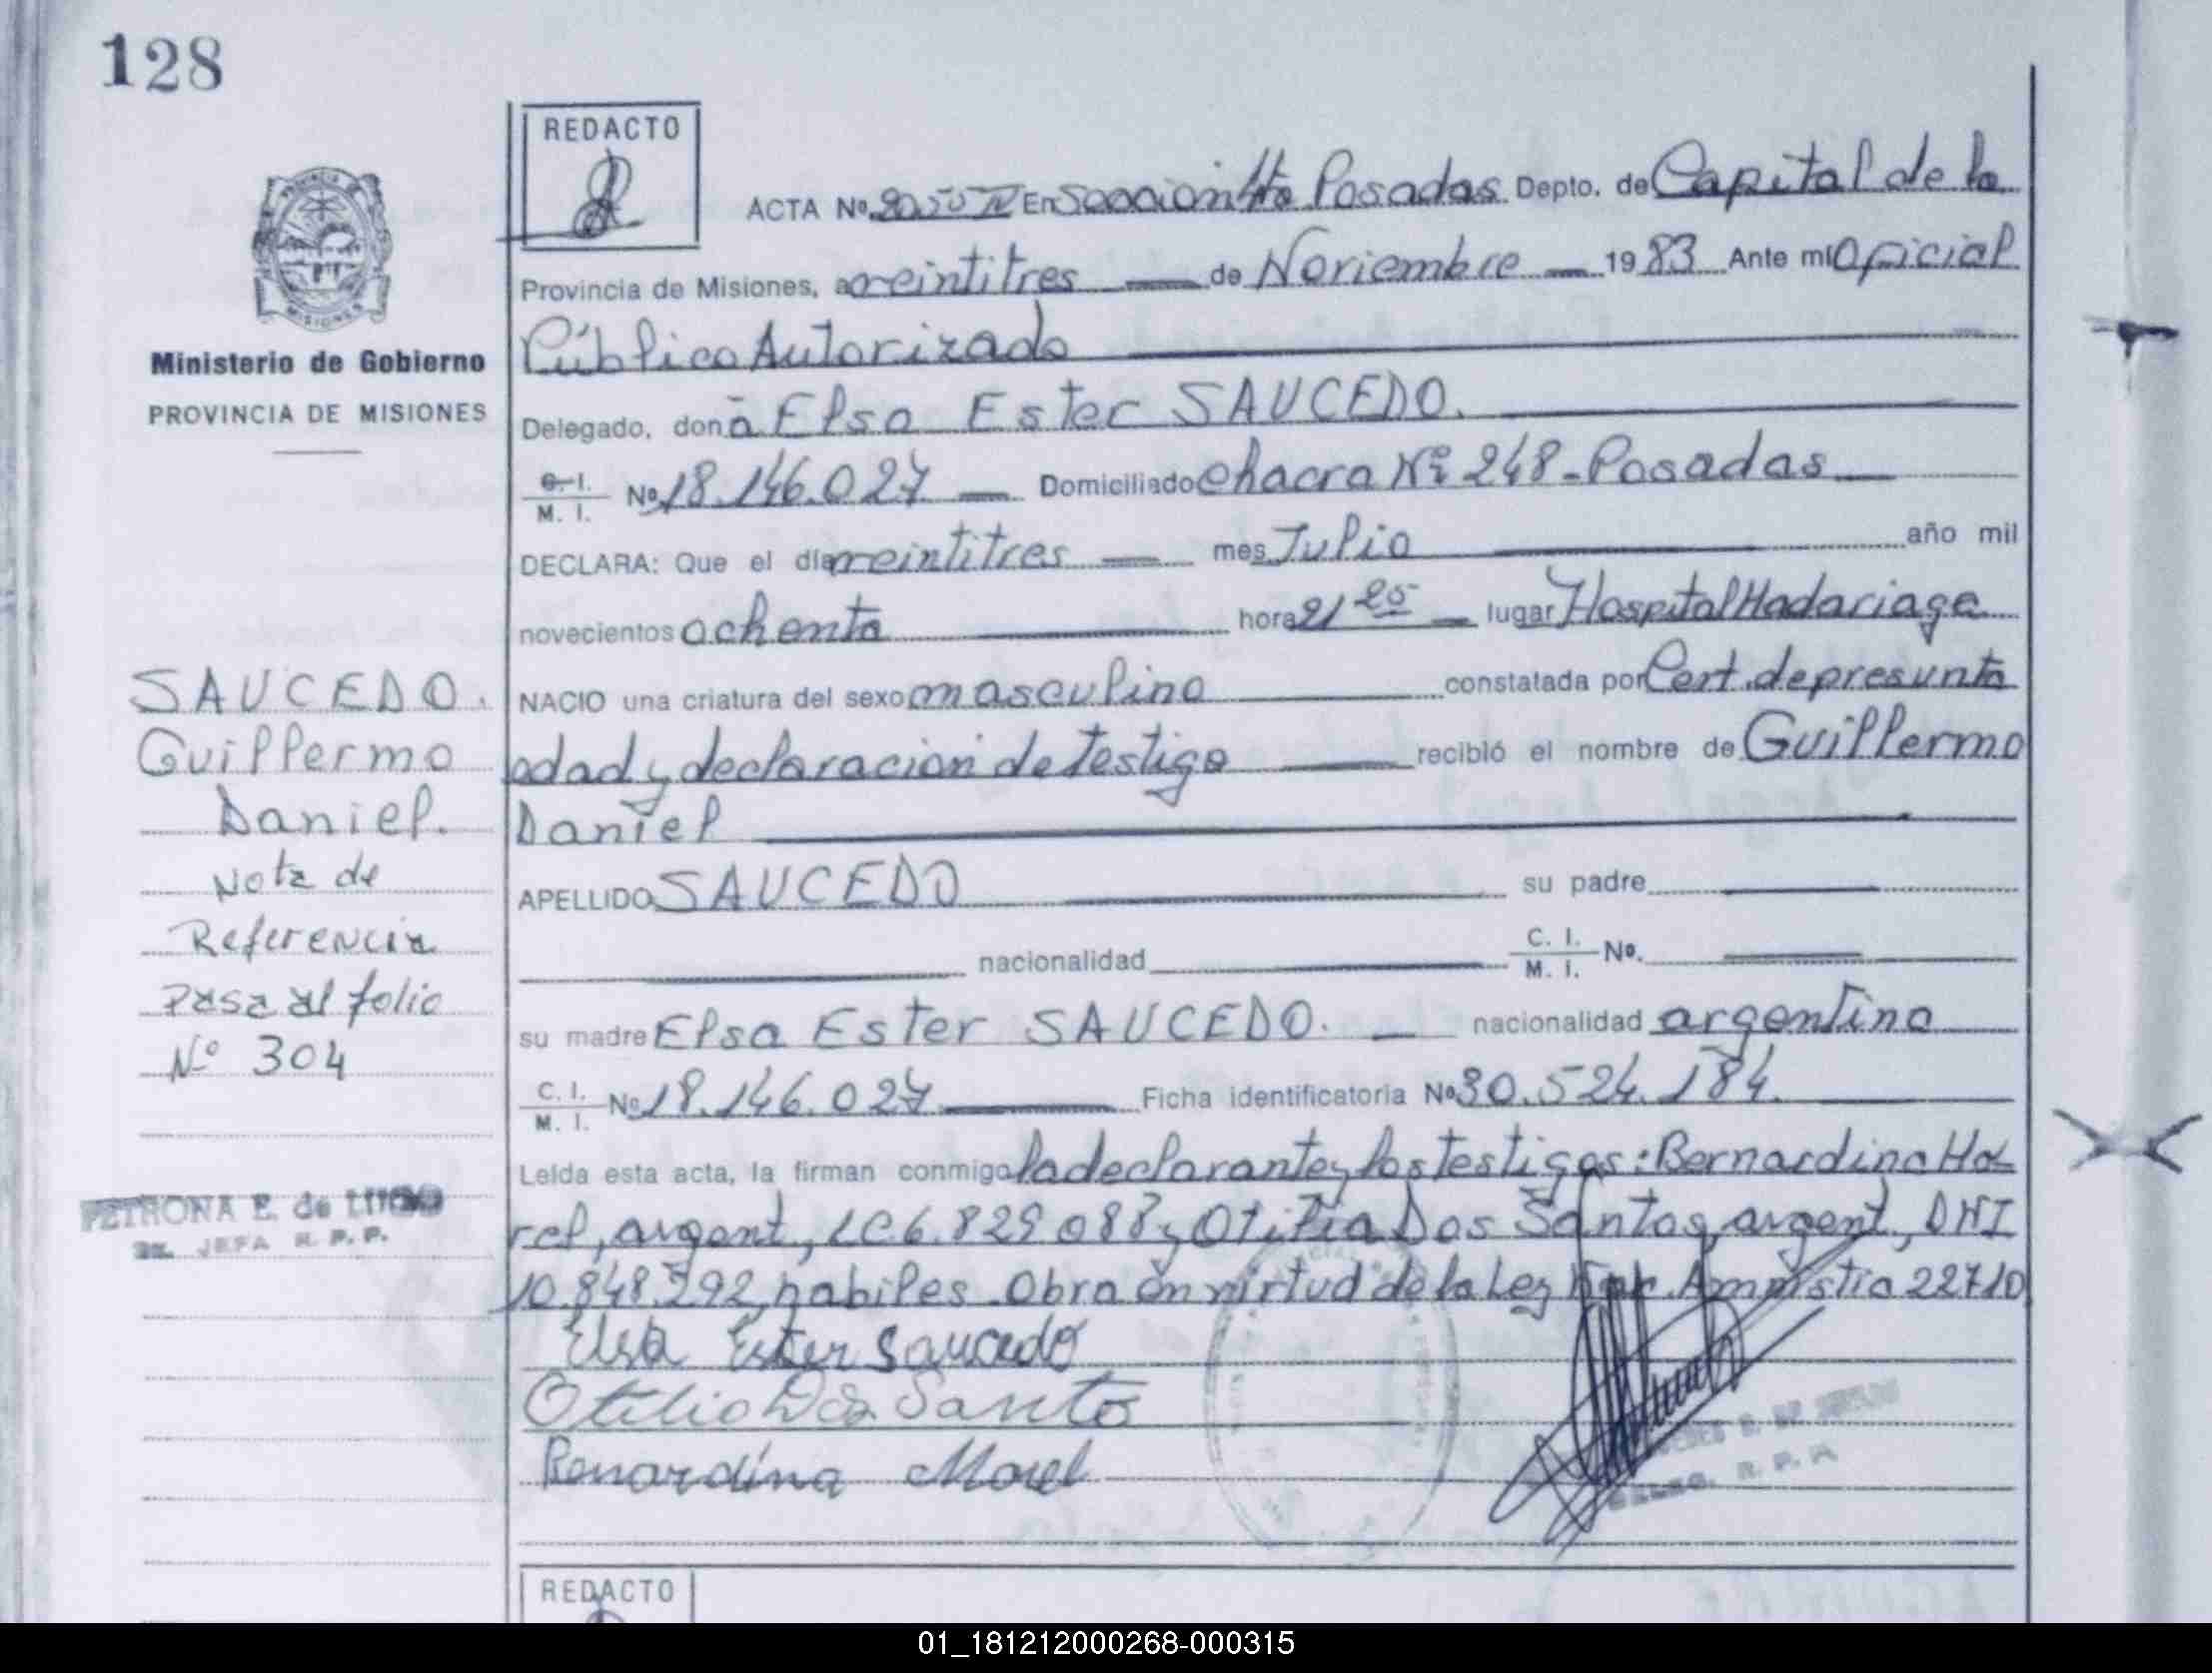 128
REDACTO
ACTA Nº 2050 IV En Sección 4ta Posadas Depto. de Capital de la
Provincia de Misiones, a veintitres de Noviembre 1983 Ante mi Oficial
Público Autorizado
Ministerio de Gobierno
PROVINCIA DE MISIONES
Delegado, don ã Elsa Ester SAUCEDO.
C. I.
M. I. Nº 18.146.027 Domiciliado Chacra Nº 248 - Posadas
DECLARA: Que el día veintitres mes Julio año mil
novecientos ochenta hora 21 25 lugar Hospital Madariaga
NACIO una criatura del sexo masculino constatada por Cert. de presunta
edad y declaración de testigo recibió el nombre de Guillermo
Daniel
APELLIDO SAUCEDO su padre
nacionalidad C. I.
M. I. Nº.
su madre Elsa Ester SAUCEDO. nacionalidad argentina
C. I.
M. I. Nº 18.146.027 Ficha identificatoria Nº 30.524.184.
Leída esta acta, la firman conmigo la declarante y los testigos: Bernardina Mo
rel, argent, LC 6.829 088 y Otilia Dos Santos, argent, DNI
10.848.292, habiles. Obra en virtud de la Ley Amnistia 22710
Elsa Ester Saucedo
Otilio Dos Santo
Benardína Morel
SAUCEDO.
Guillermo
Daniel.
Nota de
Referencia
Pasa al folio
Nº 304
PETRONA E. de LUGO
JEFA R. P. P.
R. P. P.
REDACTO
01_181212000268-000315